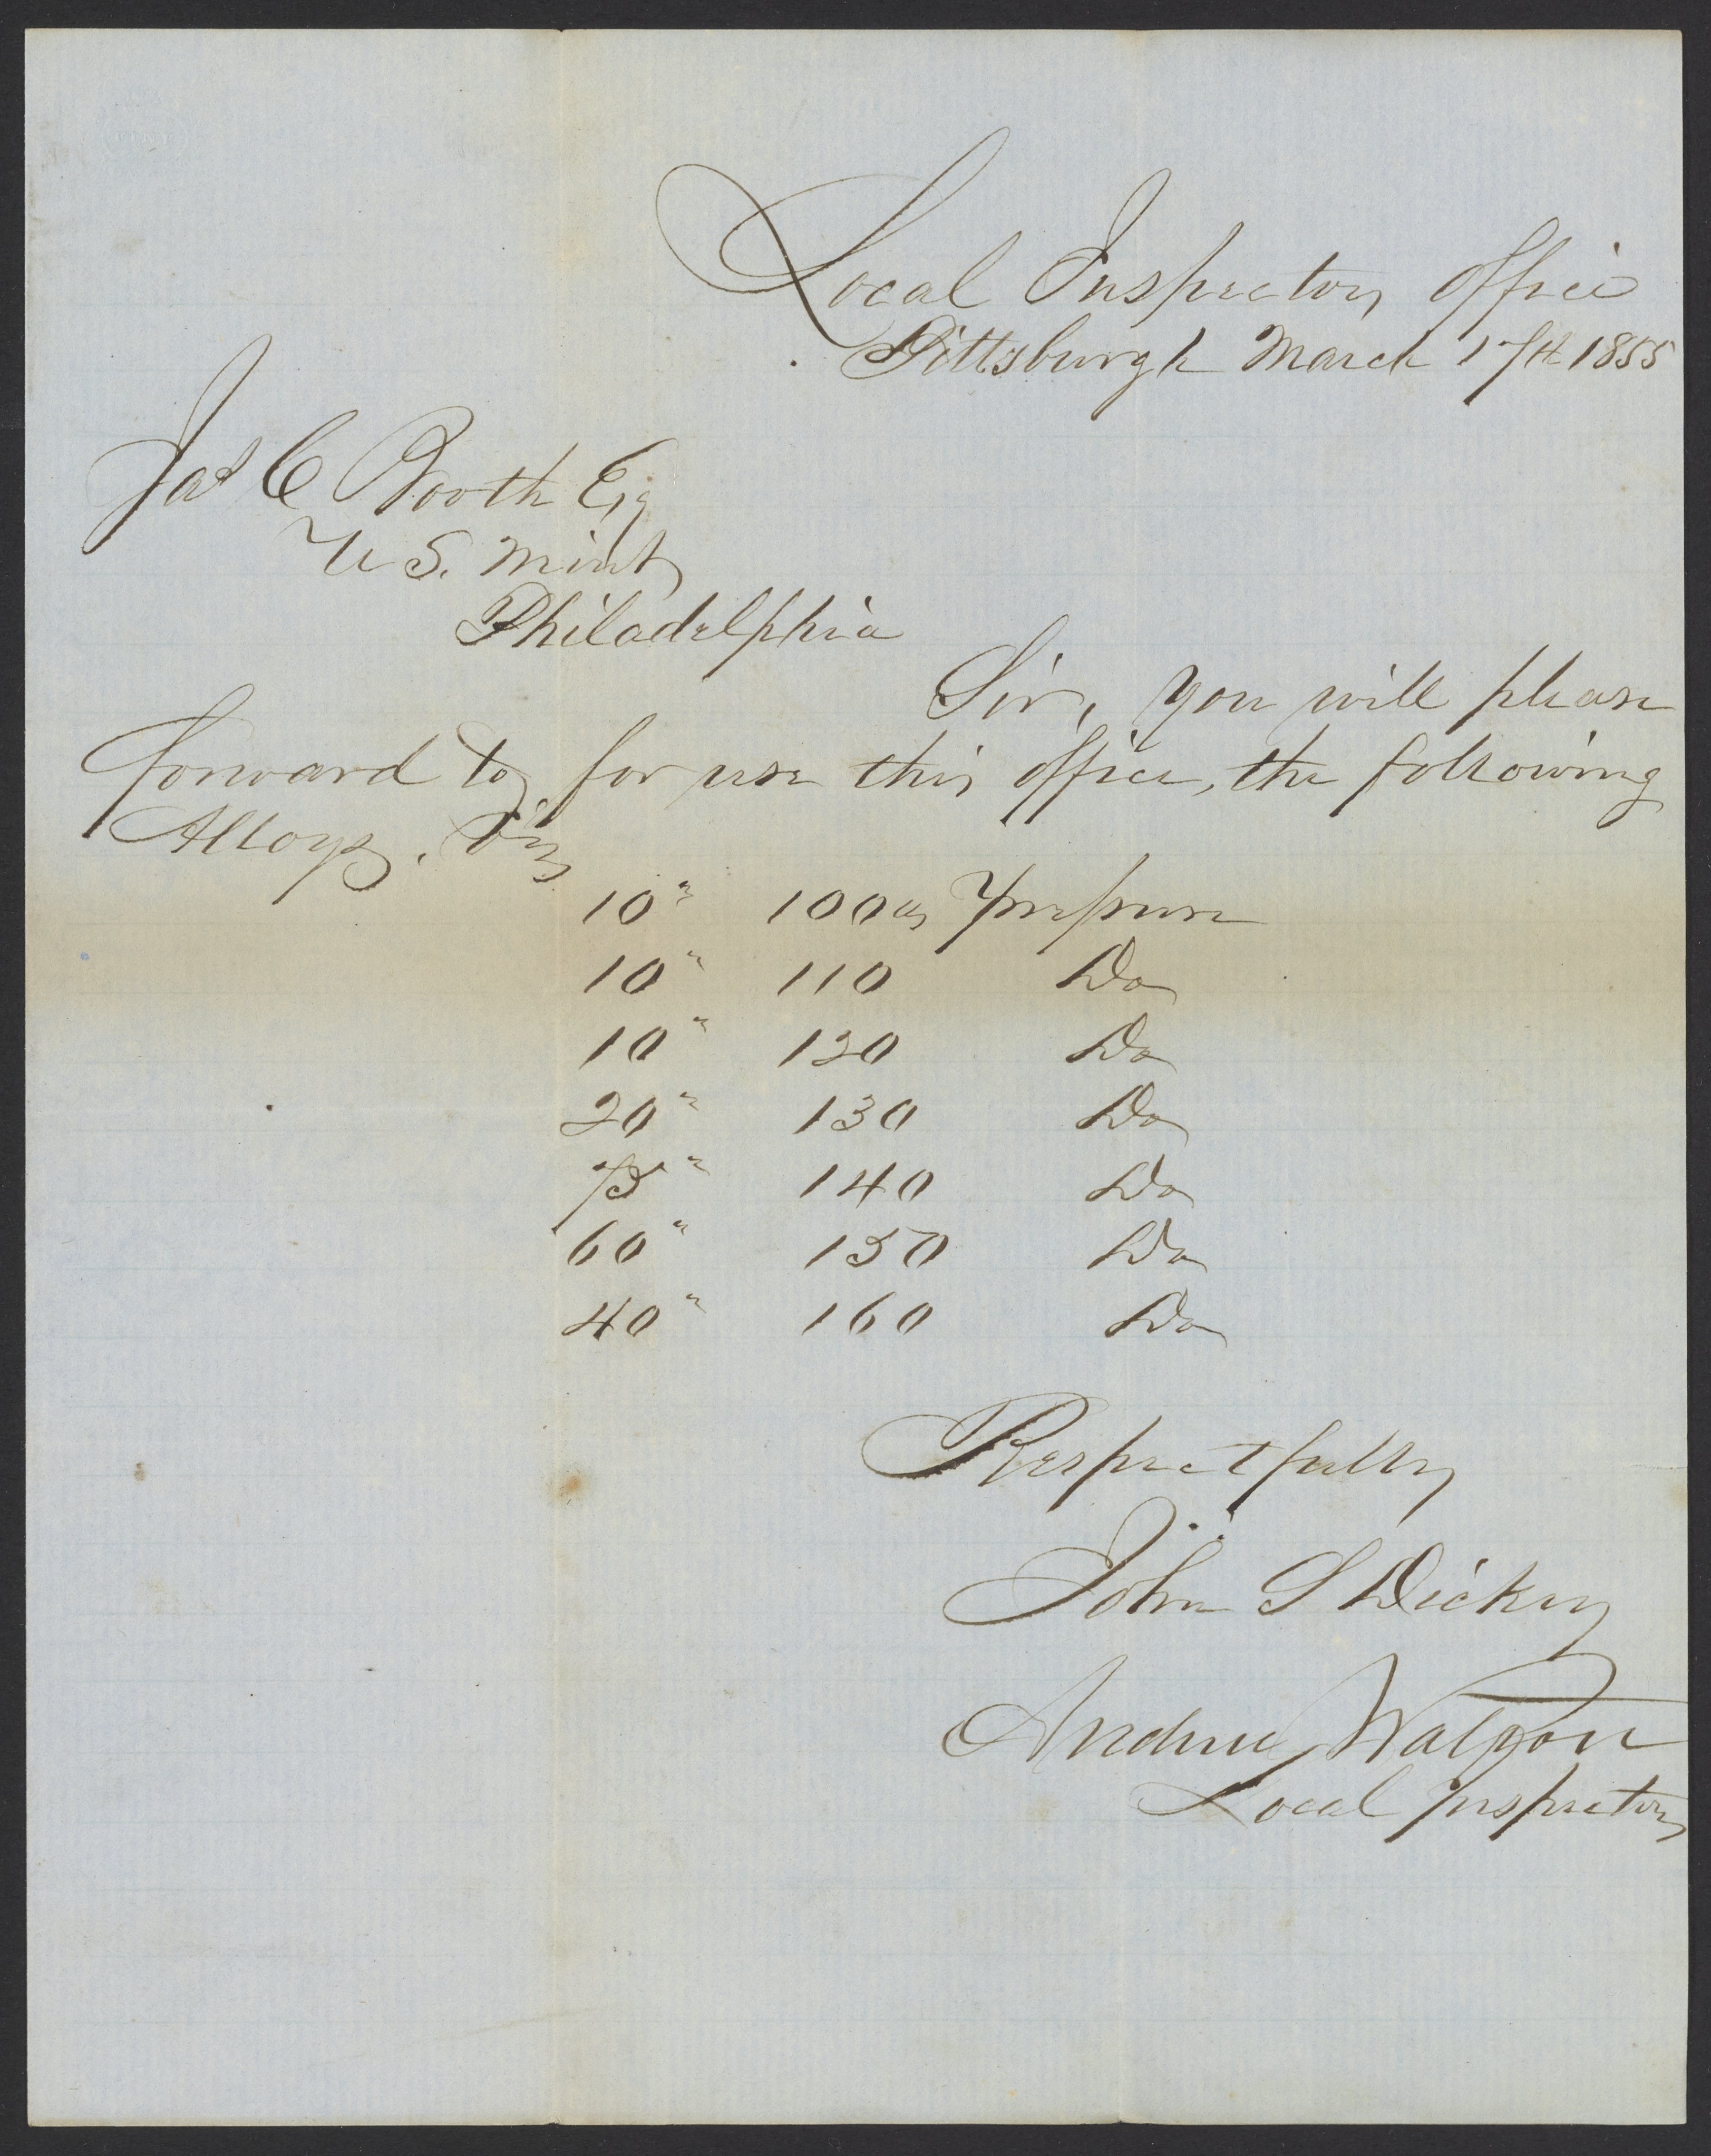 Local Inspectors Office
Pittsburgh March 17th 1855
Jas C Booth Esq
U S. Mint
Philadelphia
Sir, you will please
forward to, for use this office, the following
Alloys. Viz
10 " 100 lbs pressure
10 " 110 Do
10 " 120 Do
20 " 130 Do
75 " 140 Do
60 " 150 Do
40 " 160 Do
Respectfully
John S Dickey
Andrew Watson
Local Inspectors